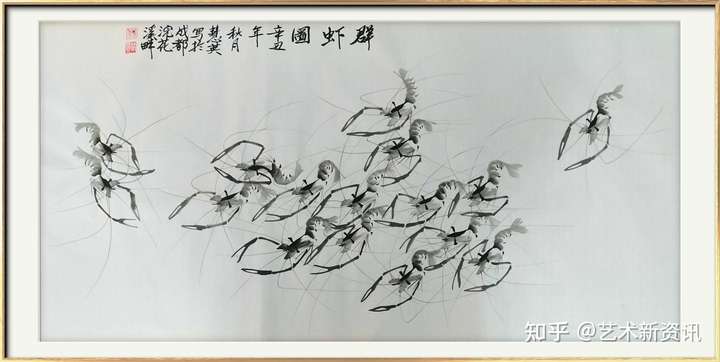 群虾圖
辛丑
年
秋月
慧英
写於
成都
浣花
溪畔
知乎 @艺术新资讯